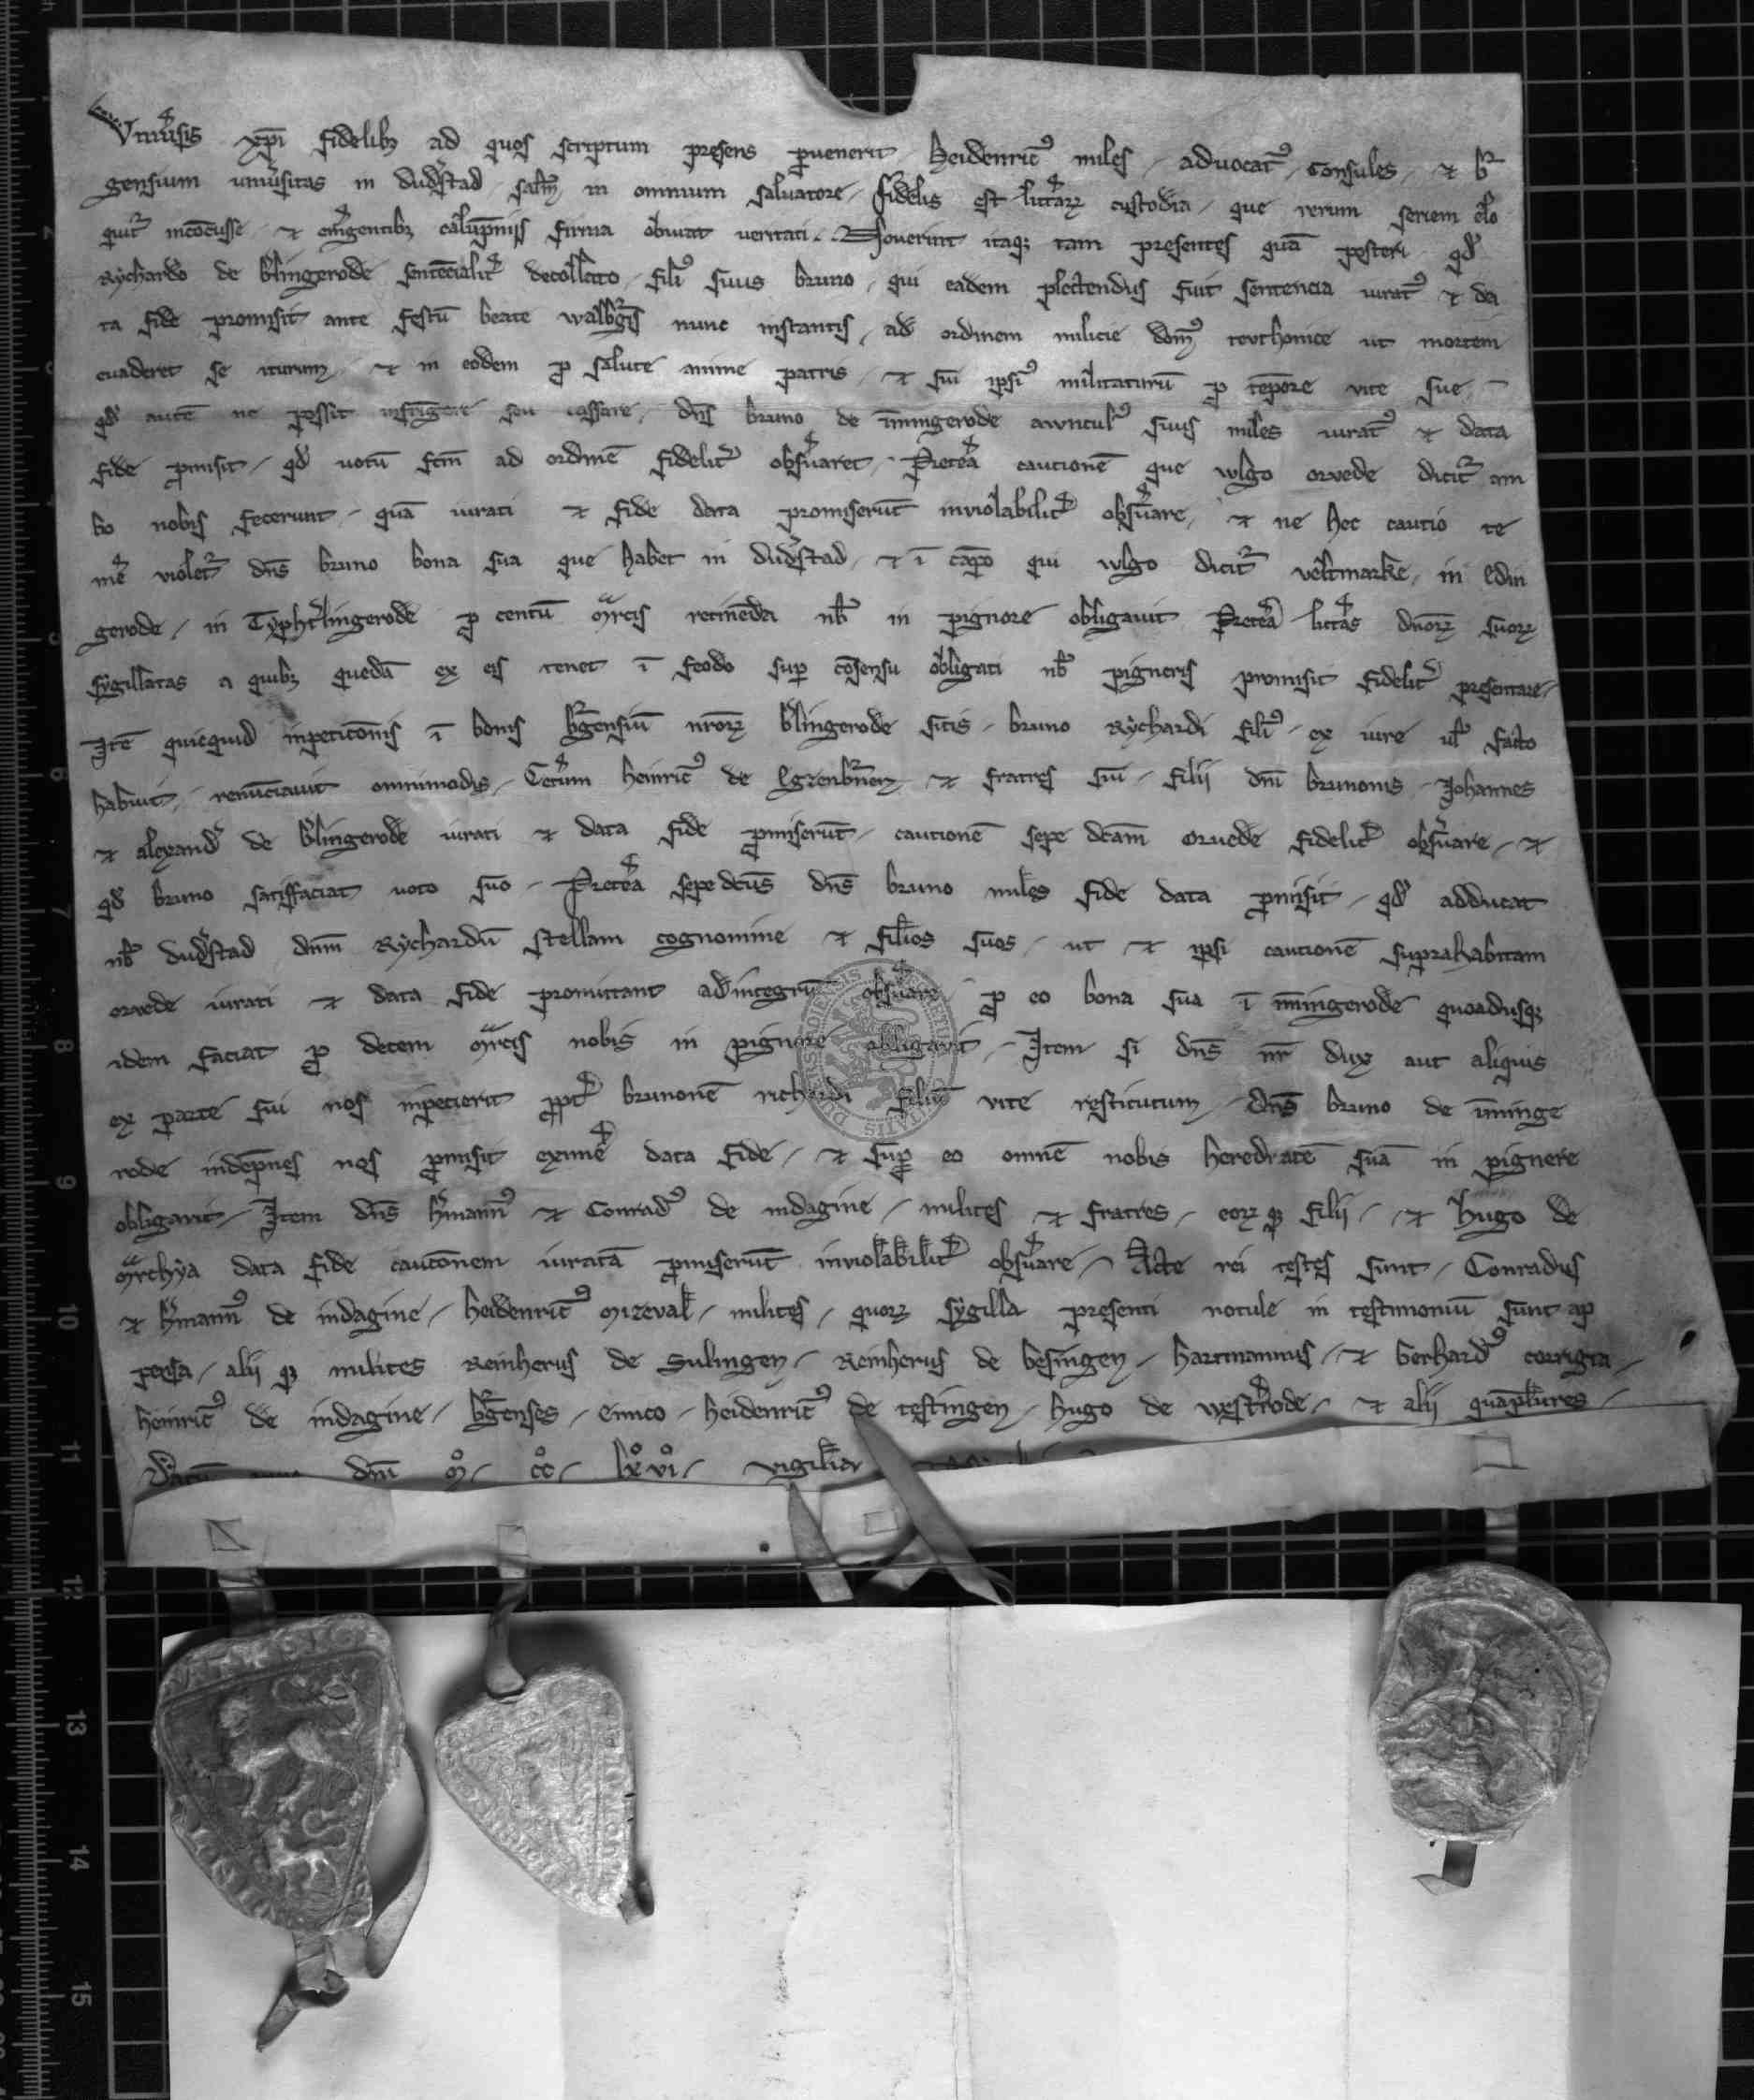 Vniu̾sis xp̅i fidelib; ad quos scriptum presens p̱uenerit heidenricꝰ miles aduocatꝰ consules ⁊ br̾
gensium uniu̾sitas in dud̾stad salm̅ in omnium saluatore fidelis est litt̾aꝝ custodia que rerum seriem elo
quit᷑ inco̅cusse ⁊ em̾gentib; calu̅pniis firma obuiat ueritati Nouerint itaq; tam presentes qua̅ posteri qd̾
Rychardo de b̾lingerode sente̅cialit̾ decollato filiꝰ suus bruno qui eadem plectendus fuit sentencia iuratꝰ ⁊ da
ta fide promisit ante festu̅ beate walb᷑gis nunc instantis ad ordinem milicie domꝰ teuthonice ut mortem
euaderet se iturum ⁊ in eodem ꝓ salute anime patris ⁊ sui ipsiꝰ militaturu̅ ꝓ te̅pore uite sue
qd̾ aute̅ ne possit infri̅gere seu cassare dn̅s bruno de i̅mingerode awnculꝰ suus miles iuratꝰ ⁊ data
fide ꝓmisit qd̾ uotu̅ fc̅m ad ordine̅ fidelit̾ obs̾uaret Prete̾a cautione̅ que wlgo orvede dicit᷑ am
bo nobis fecerunt qua̅ iurati ⁊ fide data promiseru̅t inviolabilit̾ obs̾uare ⁊ ne hec cautio te
me̾ violet᷑ dn̅s bruno bona sua que habet in dud̾stad ⁊ i̅ ca̅po qui wlgo dicit᷑ veltmarke in Edin
gerode in Typht̾lingerode ꝓ centu̅ marcis retine̅da nob̾ in pignore obligauit Prete̾a litt̾as dn̅oꝝ suoꝝ
sygillatas a quib; queda̅ ex eis tenet i̅ feodo sup co̅sensu obligati nob̾ pigneris promisit fidelit̾ presentare
Ite̅ quicquid inpetico̅nis i̅ bonis b᷑gensiu̅ nr̅oꝝ b̾lingerode sitis bruno Rychardi filiꝰ ex iure ul̾ facto
habuit renu̅ciauit omnimodis Cet̾um heinricꝰ de ⁊ fratres sui filii dn̅i brunonis Johannes
⁊ alexand̾ de b̾lingerode iurati ⁊ data fide ꝓmiseru̅t cautione̅ sepe dc̅am oruede fidelit̾ obs̾uare ⁊
qd̾ bruno satisfaciat uoto suo Prete̾a sepe dc̅us dn̅s bruno miles fide data ꝓmisit qd̾ adducat
nob̾ dud̾stad dn̅m Rychardu̅ stellam cognomine ⁊ filios suos ut ⁊ ipsi cautione̅ suprahabitam
orvede iurati ⁊ data fide promittant adintegru̅ obs̾uare ꝓ eo bona sua i̅ i̅mingerode quoadusq;
idem faciat ꝓ decem marcis nobis in pignore obligauit Item si dn̅s nr̅ dux aut aliquis
ex parte sui nos inpecierit ꝓpt̾ brunone̅ richardi filiu̅ vite restitutum dn̅s bruno de i̅minge
rode inde̅pnes nos ꝓmisit exime̾ data fide ⁊ sup eo omne̅ nobis heredtate̅ sua̅ in pignere
obligauit Item dn̅s h̾mannꝰ ⁊ Conradꝰ de indagine milites ⁊ fratres eoꝝ q; filii ⁊ hugo de
marchya data fide cauco̅nem iurata̅ ꝓmiseru̅t inviolabilit̾ obs̾uare Acte rei testes sunt Conradus
⁊ h̾mannꝰ de indagine heidenricꝰ mizeval milites quoꝝ sygilla presenti notule in testimoniu̅ sunt ap
pe̅sa alii q; milites Reinherus de Sulingen Reinherus de besingen hartmannus ⁊ Gerhardꝰ corrigia
heinricꝰ de indagine b᷑genses heidenricꝰ de testingen hugo de west̾rode ⁊ alii qua̅plures
Datum anno dn̅i mͦ ccͦ lxͦ viͦ vigilia